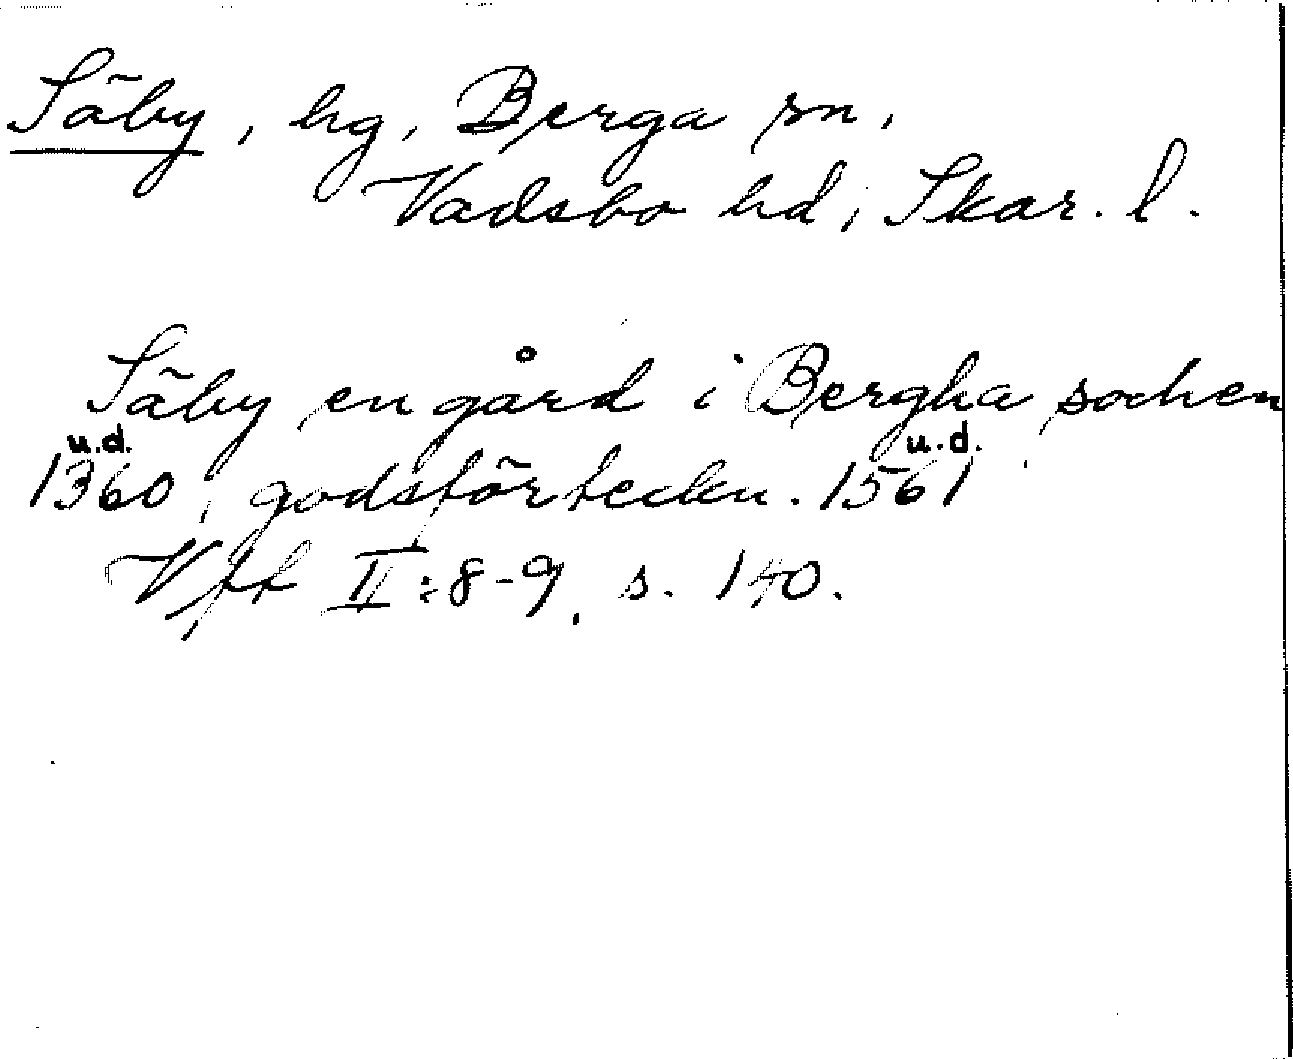 Säby, hg, Berga sn,
Vadsbo hd, Skar. l.
Säby en gård i Bergha sochen
u.d. u.d.
1360, godsförteckn. 1561
Vft II:8-9, s. 140.